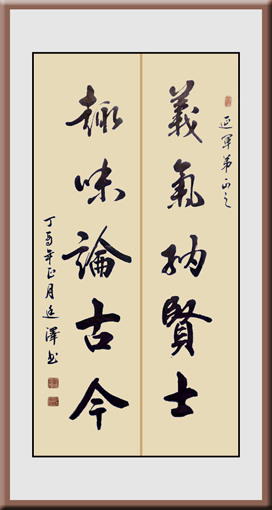 延军弟正之
義氣納賢士
趣味論古今
丁酉年正月廷澤书